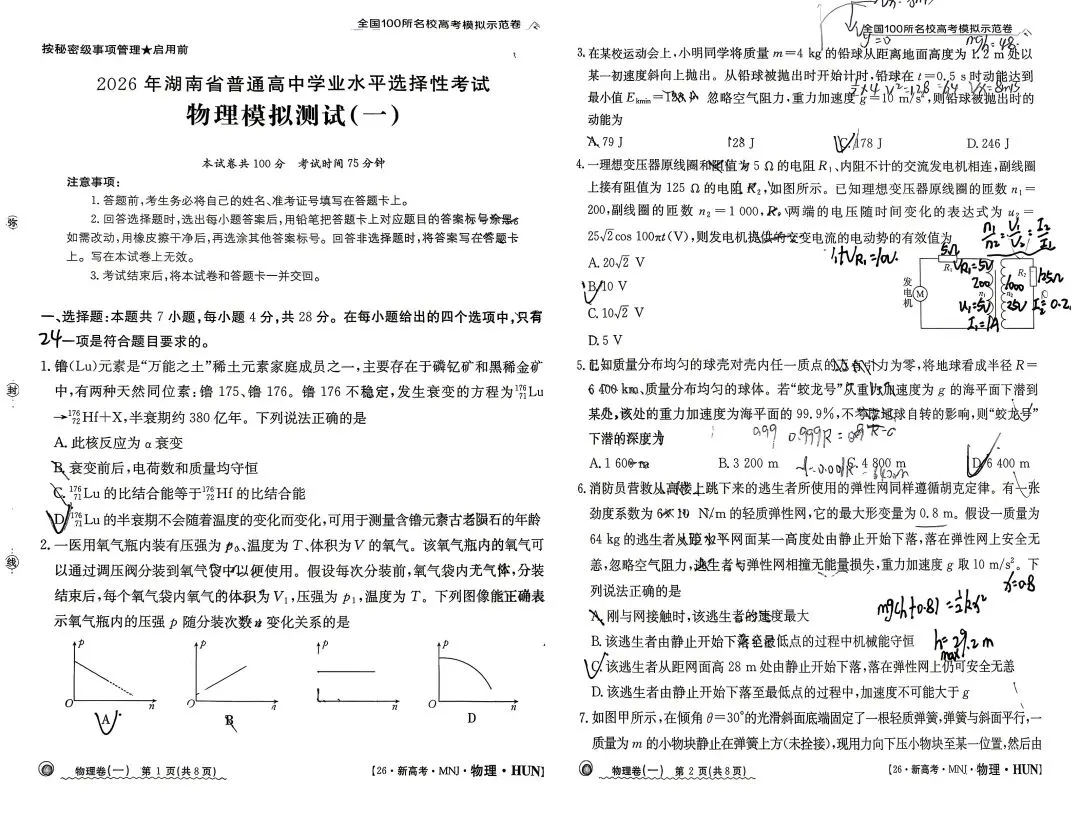 全国100所名校高考模拟示范卷
按秘密级事项管理★启用前
2026年湖南省普通高中学业水平选择性考试
物理模拟测试(一)
本试卷共100分 考试时间75分钟
注意事项:
1.答题前,考生务必将自己的姓名、准考证号填写在答题卡上。
2.回答选择题时,选出每小题答案后,用铅笔把答题卡上对应题目的答案标号涂黑。
如需改动,用橡皮擦干净后,再选涂其他答案标号。回答非选择题时,将答案写在答题卡
上。写在本试卷上无效。
3.考试结束后,将本试卷和答题卡一并交回。
弥
封
线
一、选择题:本题共7小题,每小题4分,共28分。在每小题给出的四个选项中,只有
24
一项是符合题目要求的。
1.镥(Lu)元素是“万能之土”稀土元素家庭成员之一,主要存在于磷钇矿和黑稀金矿
中,有两种天然同位素:镥175、镥176。镥176不稳定,发生衰变的方程为¹⁷⁶₇₁Lu
→¹⁷⁶₇₂Hf+X,半衰期约380亿年。下列说法正确的是
A.此核反应为α衰变
B.衰变前后,电荷数和质量均守恒
C.¹⁷⁶₇₁Lu的比结合能等于¹⁷⁶₇₂Hf的比结合能
D.¹⁷⁶₇₁Lu的半衰期不会随着温度的变化而变化,可用于测量含镥元素古老陨石的年龄
2.一医用氧气瓶内装有压强为p₀、温度为T、体积为V的氧气。该氧气瓶内的氧气可
以通过调压阀分装到氧气袋中以便使用。假设每次分装前,氧气袋内无气体,分装
结束后,每个氧气袋内氧气的体积为V₁,压强为p₁,温度为T。下列图像能正确表
示氧气瓶内的压强p随分装次数n变化关系的是
p p p p
O n O n n O n
A B D
物理卷(一) 第1页(共8页) 【26·新高考·MNJ·物理·HUN】
全国100所名校高考模拟示范卷
mgh=48
3.在某校运动会上,小明同学将质量m=4 kg的铅球从距离地面高度为1.2 m处以
某一初速度斜向上抛出。从铅球被抛出时开始计时,铅球在t=0.5 s时动能达到
最小值Ekmin=128 J。忽略空气阻力,重力加速度g=10 m/s²,则铅球被抛出时的
动能为
A.79 J 128 J C.178 J D.246 J
4.一理想变压器原线圈和阻值为5 Ω的电阻R₁、内阻不计的交流发电机相连,副线圈
上接有阻值为125 Ω的电阻R₂,如图所示。已知理想变压器原线圈的匝数n₁=
200,副线圈的匝数n₂=1 000,R₂两端的电压随时间变化的表达式为u₂=
25√2cos 100πt(V),则发电机提供的交变电流的电动势的有效值为
n₁/n₂=U₁/U₂=I₂/I₁
A.20√2 V
B.10 V
C.10√2 V
D.5 V
发电机 M R₁ n₁ n₂ R₂
5Ω VR₁=5V 200 1000 125Ω
U₁=5V 25V I₂=0.2
I₁=1A
5.已知质量分布均匀的球壳对壳内任一质点的万有引力为零,将地球看成半径R=
6 400 km、质量分布均匀的球体。若“蛟龙号”从重力加速度为g的海平面下潜到
某处,该处的重力加速度为海平面的99.9%,不考虑地球自转的影响,则“蛟龙号”
下潜的深度为
A.1 600 m B.3 200 m C.4 800 m D.6 400 m
6.消防员营救从高楼上跳下来的逃生者所使用的弹性网同样遵循胡克定律。有一张
劲度系数为6×10 N/m的轻质弹性网,它的最大形变量为0.8 m。假设一质量为
64 kg的逃生者从距水平网面某一高度处由静止开始下落,落在弹性网上安全无
恙,忽略空气阻力,逃生者与弹性网相撞无能量损失,重力加速度g取10 m/s²。下
列说法正确的是
x=0.8
mg(h+0.8)=½kx²
A.刚与网接触时,该逃生者的速度最大
B.该逃生者由静止开始下落至最低点的过程中机械能守恒
h=29.2 m
max
C.该逃生者从距网面高28 m处由静止开始下落,落在弹性网上仍可安全无恙
D.该逃生者由静止开始下落至最低点的过程中,加速度不可能大于g
7.如图甲所示,在倾角θ=30°的光滑斜面底端固定了一根轻质弹簧,弹簧与斜面平行,一
质量为m的小物块静止在弹簧上方(未拴接),现用力向下压小物块至某一位置,然后由
物理卷(一) 第2页(共8页) 【26·新高考·MNJ·物理·HUN】